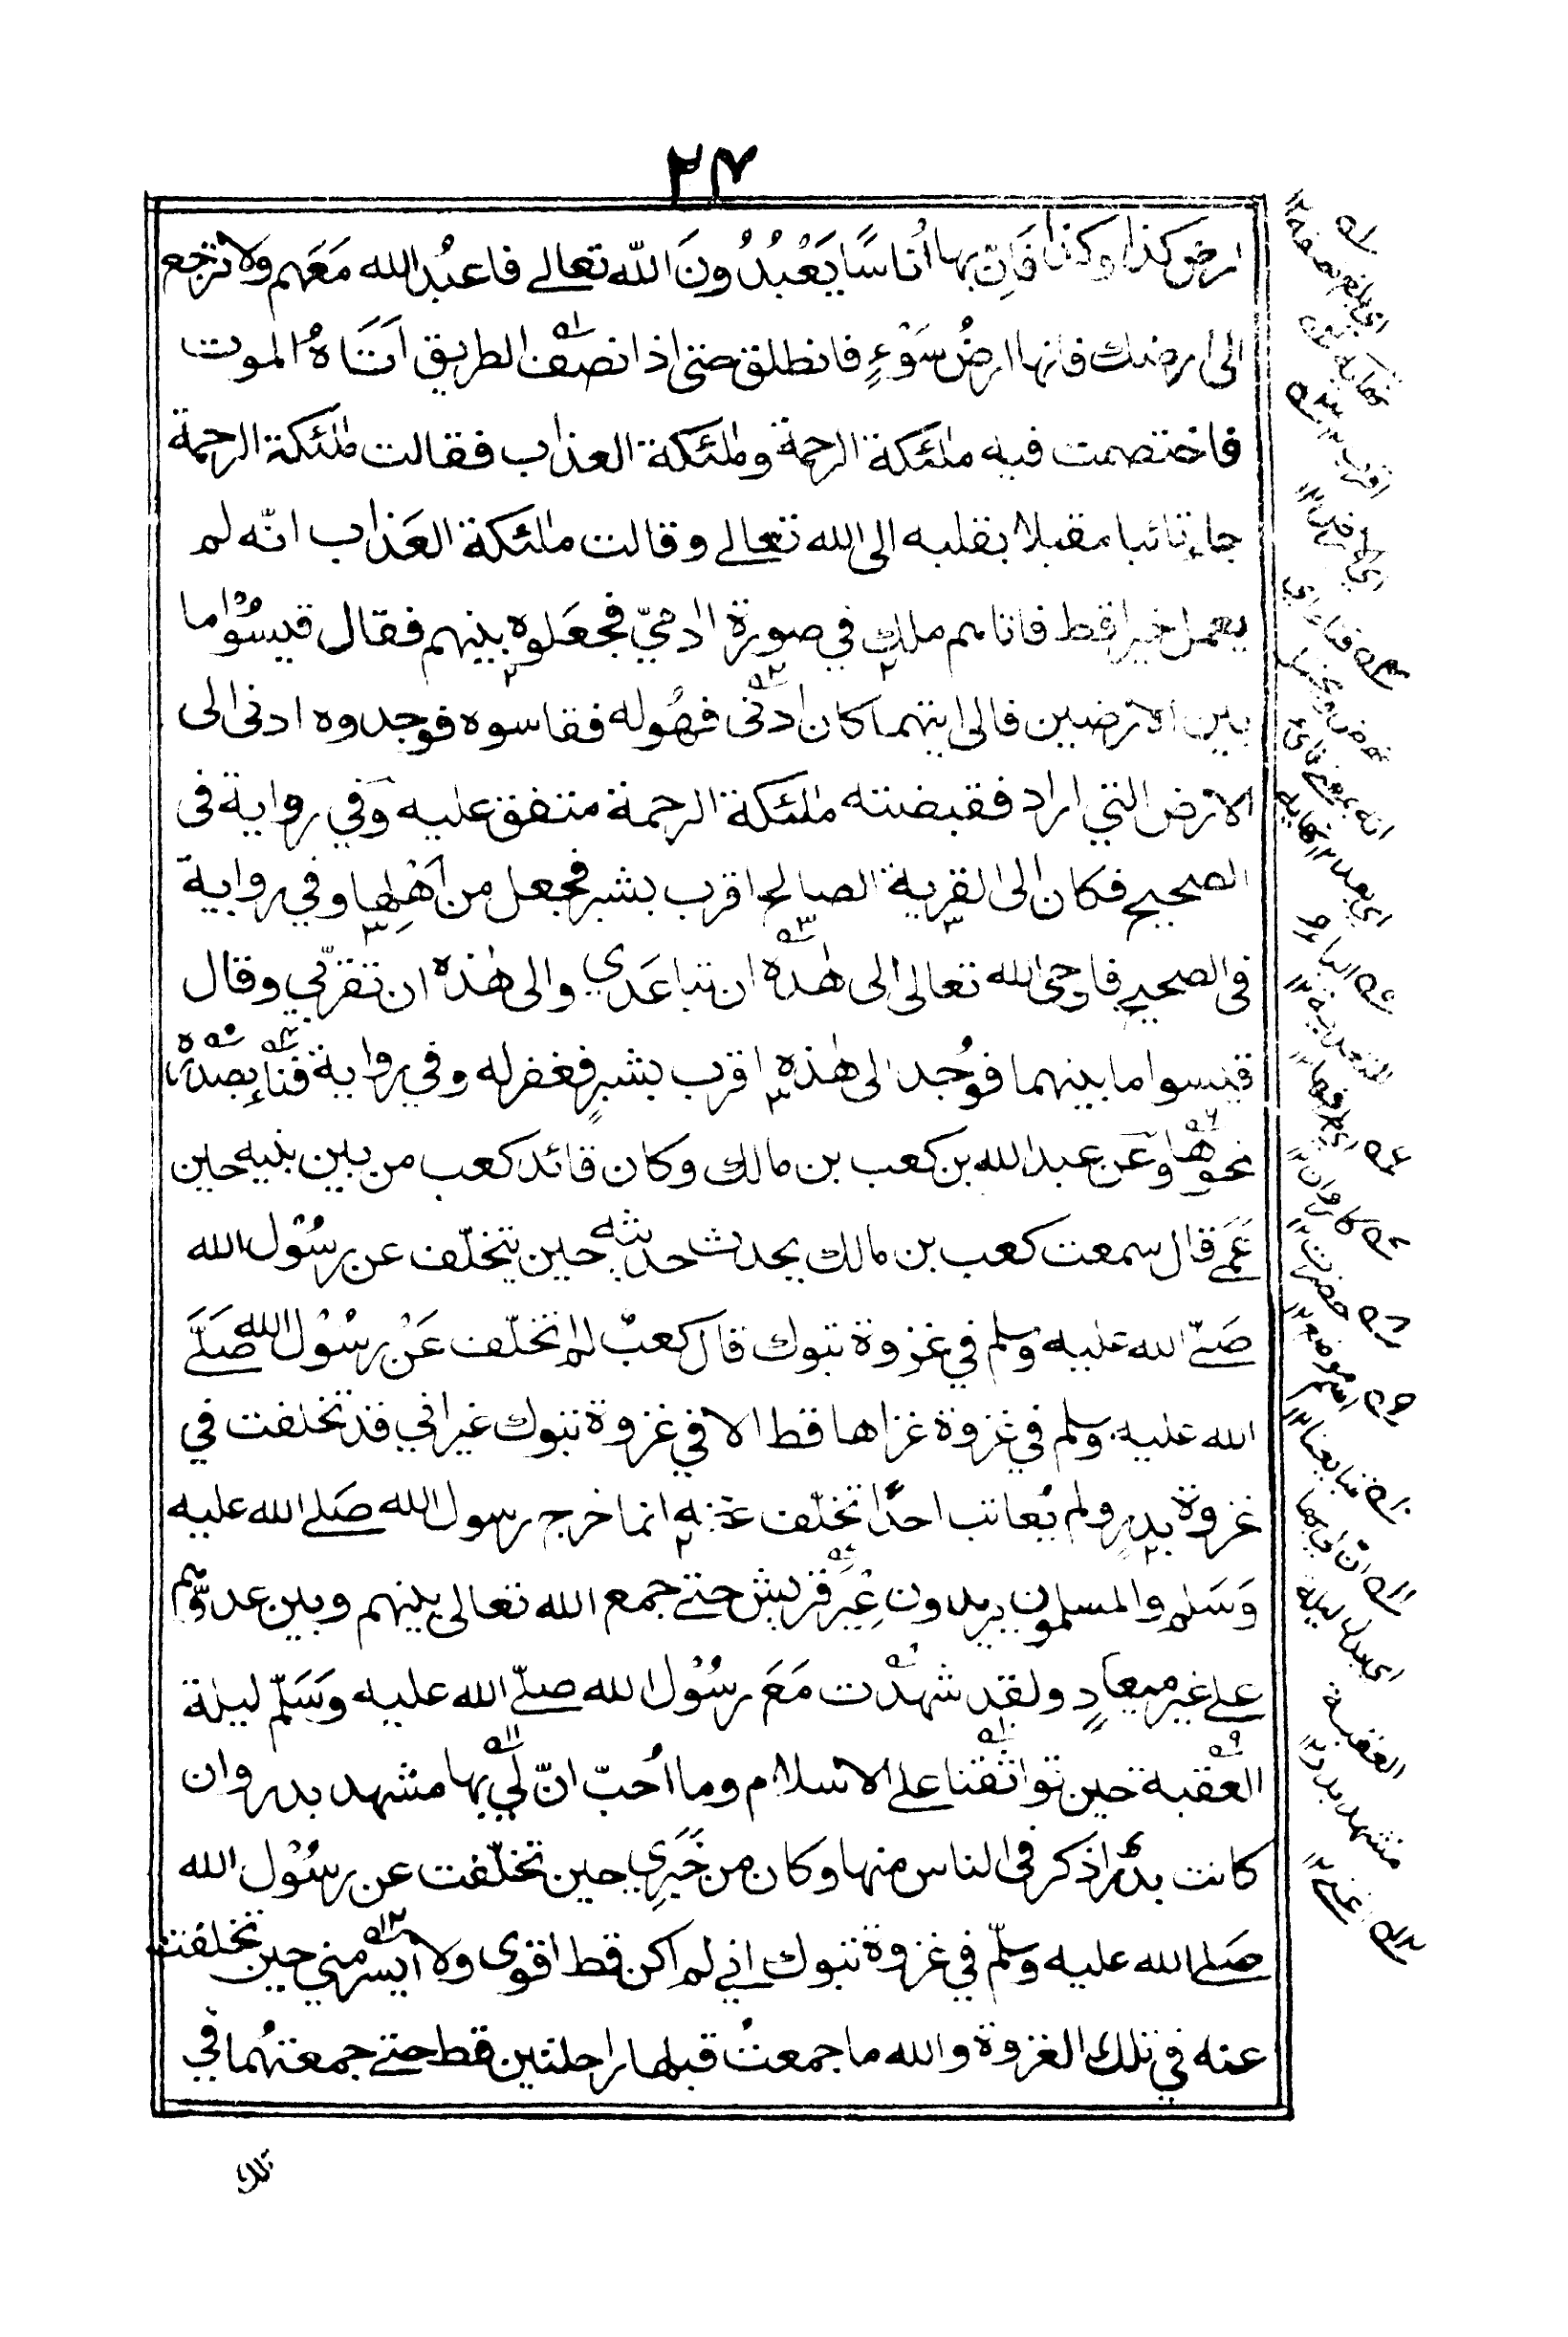 ٢٤
ارض كذا وكذا فَاِنّ بها اُناسًا يَعْبُدُونَ اللّٰه تعالے فاعبُد الله مَعَهم ولا ترجع
الى ارضك فانها ارضُ سَوْءٍ فانطلق حتى اذا نصف الطريق اَتَاهُ الموت
فاختصمت فيه ملٰئكة الرحمة وملٰئكة العذاب فقالت ملٰئكة الرحمة
جاء تائبا مقبلا بقلبه الى الله تعالے وقالت ملٰئكة العَذاب انّه لم
يعمل خيرا قط فاتاهم ملك في صورة اٰدميّ فجعَلوه بينهم فقال قيسُوْا ما
بين الارضين فالى ايتهما كان ادنى فهُوله فقاسوه فوجدوه ادنى الى
الارض التي اراد فقبضته ملٰئكة الرحمة متفق عليه وَفي رواية فى
الصحيح فكان الى القرية الصالحة اقرب بشبر فجعل من اَهْلِها وفي رواية
فى الصحيح فاوحى الله تعالى الى هٰذه ان تباعَدي والى هٰذه ان تقرّبي وقال
قيسوا ما بينهما فوُجد الى هٰذه اقرب بشبرٍ فغفرله وفي رواية فنآء بصدره
نحوها وعَن عبد الله بن كعب بن مالك وكان قائد كعب من بين بنيه حين
عَمِيَ قال سمعت كعب بن مالك يحدث حديثه حين تخلّف عن رسُوْل الله
صَلّے الله عليه وسلم في غزوة تبوك قال كعبٌ لم اتخلّف عَنْ رسُوْل الله صَلَّے
الله عليه وسلم في غزوة غزاها قط الا في غزوة تبوك غير اني قد تخلفت في
غزوة بدرٍ ولم يُعاتب احدًا تخلّف عنه انما خرج رسول الله صَلے الله عليه
وَسَلم والمسلمون يريدون عِيْرَ قريش حتے جمع الله تعالى بينهم وبين عدوّهم
علے غير ميعادٍ ولقد شهدت مَعَ رسُوْل الله صلّے الله عليه وَسَلّم ليلة
العقبة حين تواثقنا علے الاسلام وما اُحبّ انّ لي بها مشهد بدر وان
كانت بدرٌ اذكر فى الناس منها وكان من خَبَري حين تخلّفت عن رسُوْل الله
صَلے الله عليه وسَلّم في غزوة تبوك اني لم اكن قط اقوى ولا ايسر مني حين تخلفت
عنه في تلك الغزوة والله ما جمعتُ قبلها راحلتين قط حتے جمعتهُما في
تلك
اي بلغ نصفه
اقرب
كاروان
حضرت
اسم موضع
تبايعنا
اي بدل ليلة
العقبة
مشهد بدر